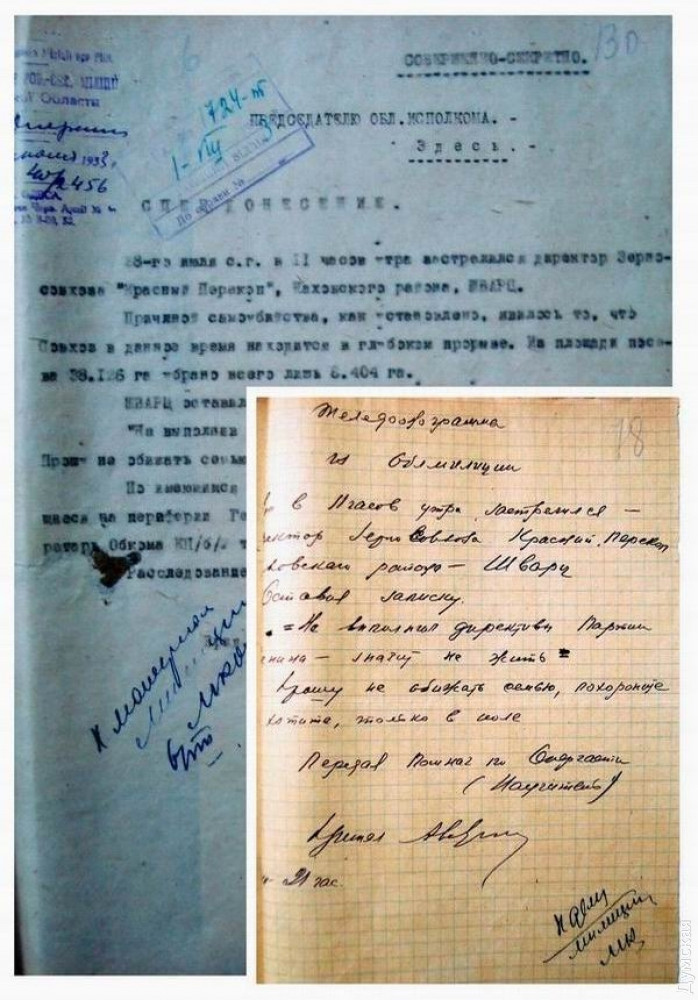 СОВЕРШЕННО-СЕКРЕТНО.
13о
6
РОБ.-СЕЛ. МІЛІЦІЇ
Области
1933 г.
456
1724
1-VIII
По справі №
ПРЕДСЕДАТЕЛЮ ОБЛ.ИСПОЛКОМА.-
Здесь.-
СПЕЦДОНЕСЕНИЕ.
28-го июля с.г. в 11 часов утра застрелился директор Зерно-
совхоза "Красный Перекоп", Каховского района, ШВАРЦ.
Причиной самоубийства, как установлено, явилось то, что
Совхоз в данное время находится в глубоком прорыве. Из площади посе-
ва 38.126 га убрано всего лишь 6.404 га.
ШВАРЦ оставил
"Не выполнив
Прошу не обижать семью
По имеющимся
щиеся на периферии Ге
ратора Обкома КП/б/У т
Расследование
К материал
милиции
МКо
Телефонограмма
18
из Облмилиции
в 11 часов утра застрелился —
ректор Зерно Совхоза Красный Перекоп
ховского района — Шварц
Оставил записку.
= Не выполнил директивы Партии
— значит не жить =
Прошу не обижать семью, похороните
хотите, только в поле
Передал Помнач по Оперчасти
Принял
21 час.
К делу
милиции
МК
Думская